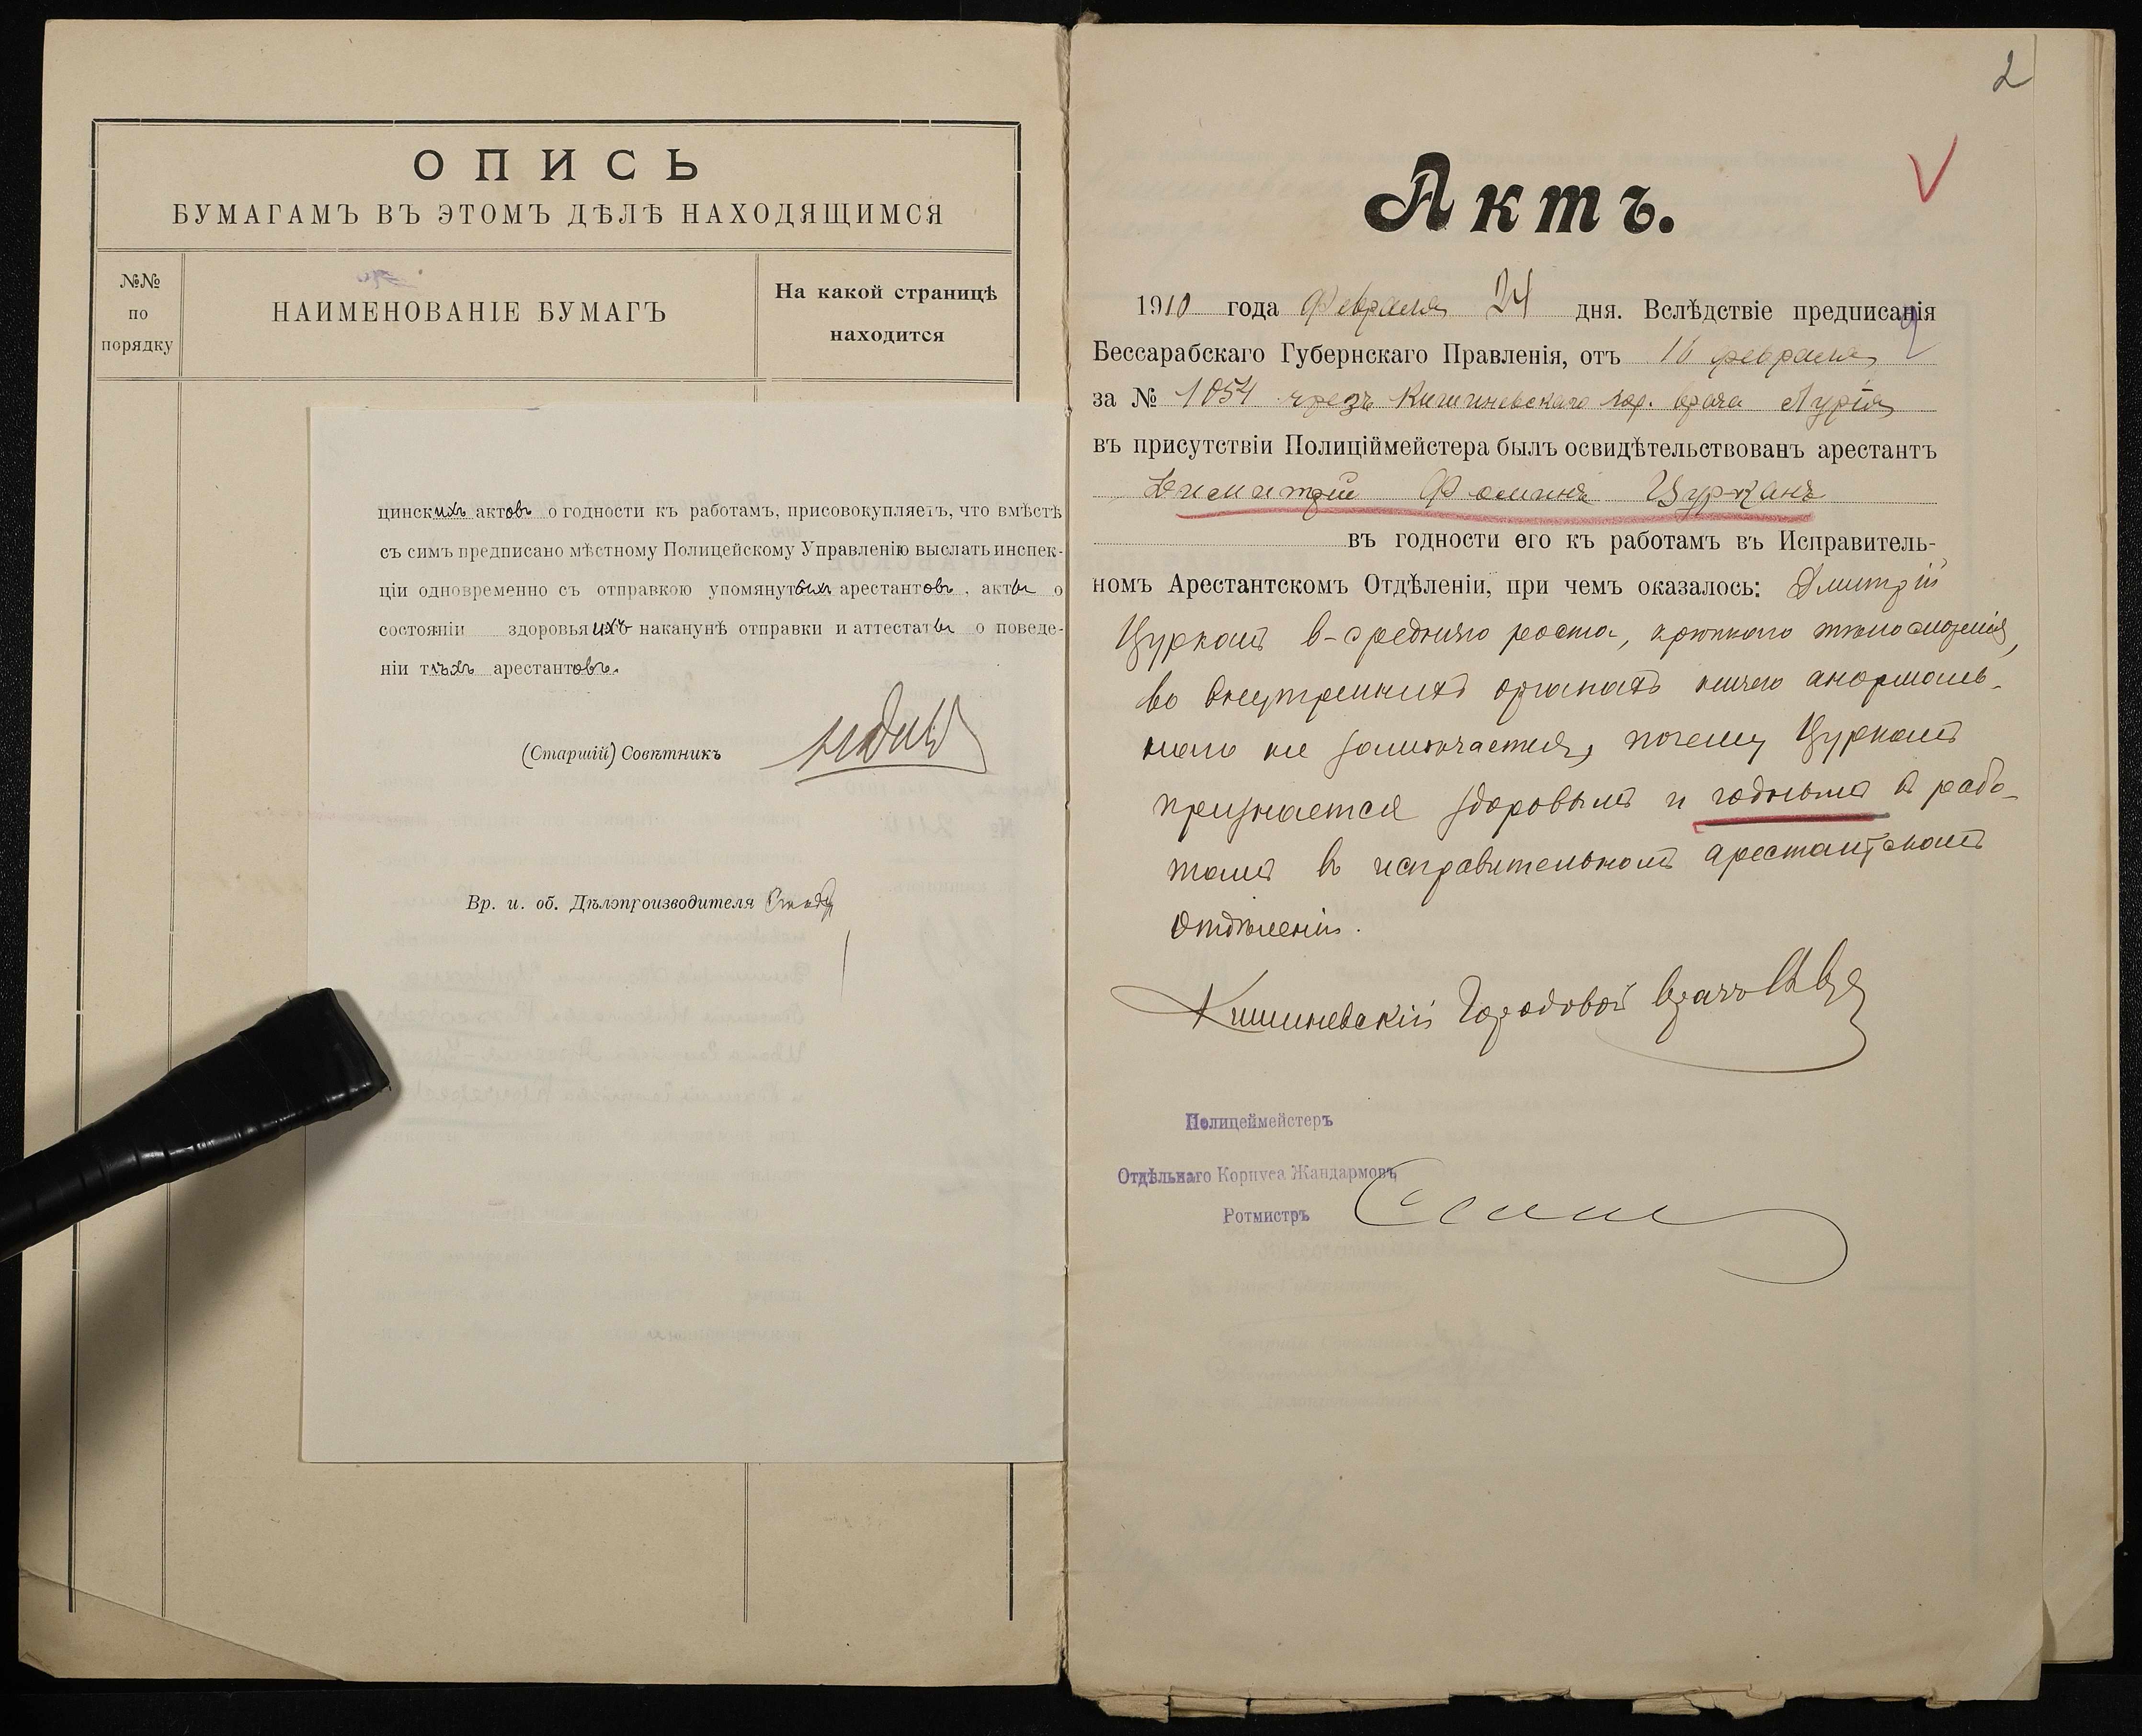 ОПИСЬ
БУМАГАМЪ ВЪ ЭТОМЪ ДѢЛѢ НАХОДЯЩИМСЯ
№№
по
порядку
НАИМЕНОВАНІЕ БУМАГЪ
На какой страницѣ
находится
цинскихъ актовъ о годности къ работамъ, присовокупляетъ, что вмѣстѣ
съ симъ предписано мѣстному Полицейскому Управленію выслать инспек-
ціи одновременно съ отправкою упомянутыхъ арестантовъ, акты о
состояніи здоровья ихъ наканунѣ отправки и аттестаты о поведе-
ніи тѣхъ арестантовъ.
(Старшій) Совѣтникъ
Вр. и. об. Дѣлопроизводителя
2
Актъ.
1910 года Февраля 24 дня. Вслѣдствіе предписанія
Бессарабскаго Губернскаго Правленія, отъ 16 февраля
за № 1054 чрезъ Кишиневскаго гор. врача Лурія
въ присутствіи Полиціймейстера былъ освидѣтельствованъ арестантъ
Димитрій Фоминъ Цурканъ
въ годности его къ работамъ въ Исправитель-
номъ Арестантскомъ Отдѣленіи, при чемъ оказалось: Дмитрій
Цурканъ в-средняго роста, крѣпкаго тѣлосложенія,
во внутреннихъ органахъ ничего анормаль-
наго не замѣчается, почему Цурканъ
признается здоровымъ и годнымъ к рабо-
тамъ въ исправительномъ арестантскомъ
отдѣленіи.
Кишиневскій Городовой врачъ
Полицеймейстеръ
Отдѣльнаго Корпуса Жандармовъ
Ротмистръ